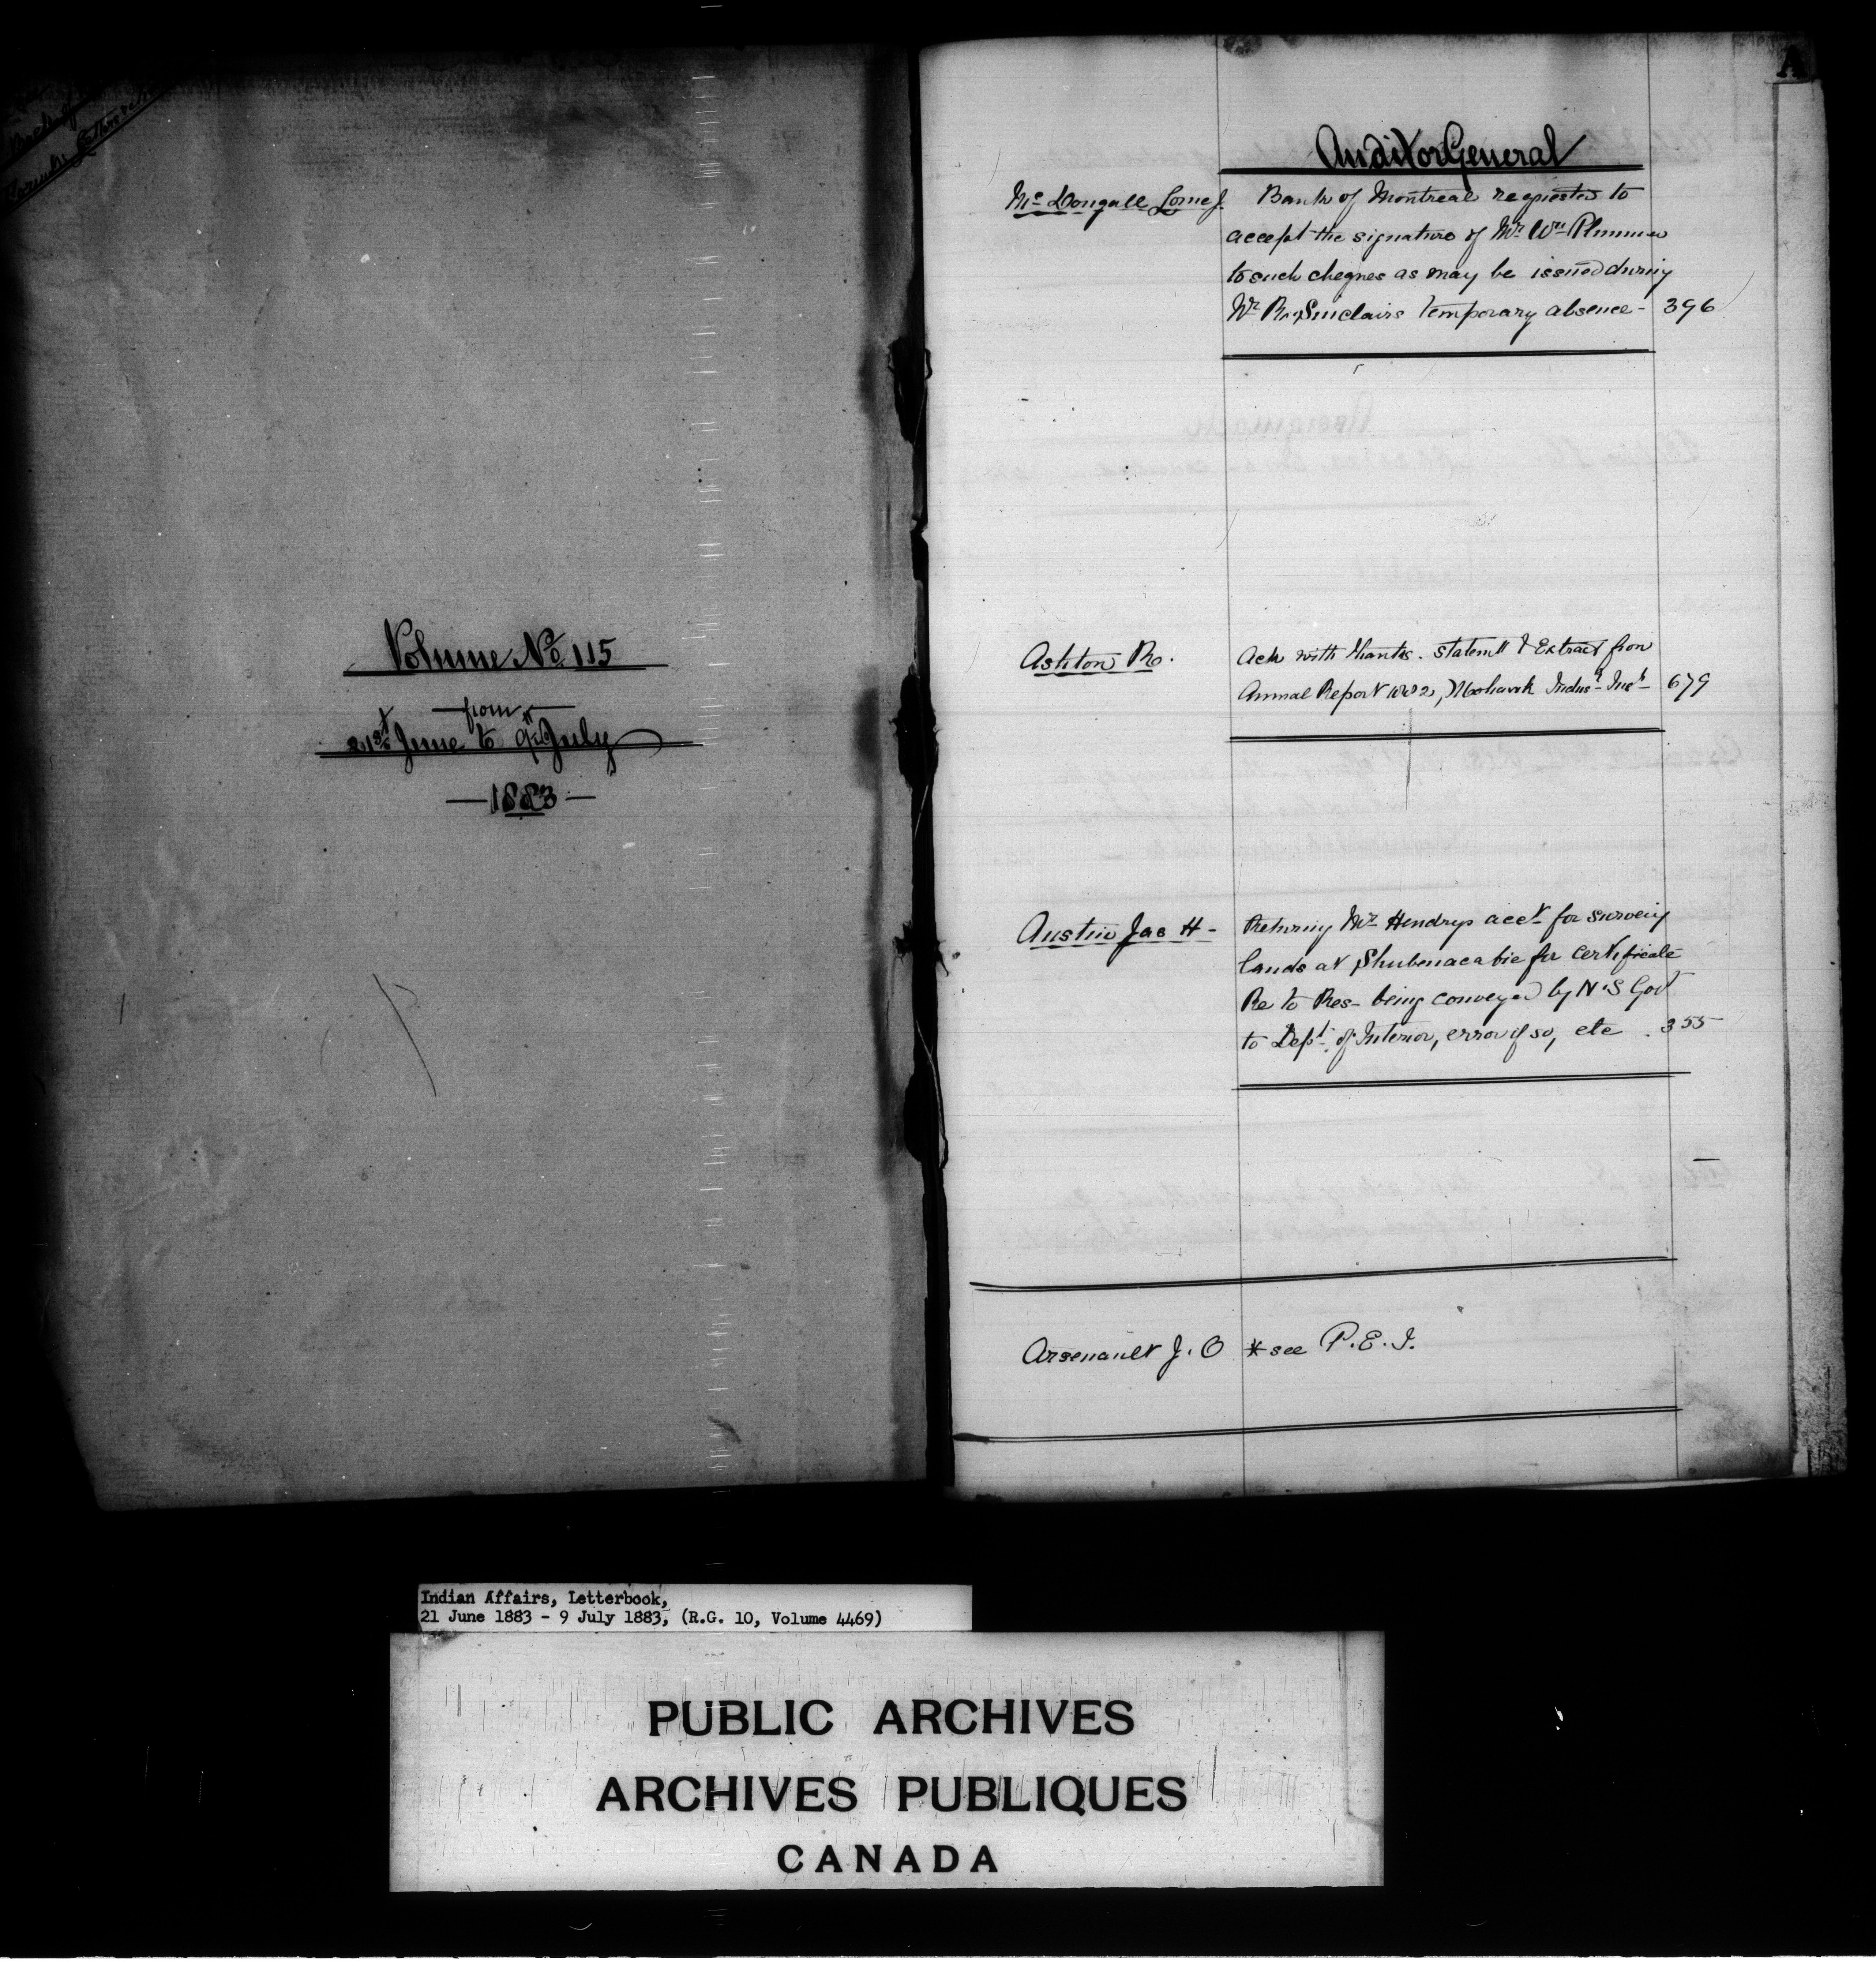 Volume No. 115
from
21st June to 9th July
1883
A
Auditor General
McDougall Lorne J.
Bank of Montreal requested to
accept the signature of Mr. Wm. Plummer
to such cheques as may be issued during
Mr. R. Sinclairs temporary absence - 396
Ashton Ro.
Ack with thanks. statemt & Extract from
Annual Report 1882, Mohawk Indusl. Inst. 679
Austin Jas H -
Returning Mr. Hendrys acct. for surveyg
lands at Shubenacabie for Certificate
Re to Res- being conveyed by N.S Govt
to Dept. of Interior, error if so, etc . 355
Arsenault J. O * see P. E. I.
Indian Affairs, Letterbook,
21 June 1883 - 9 July 1883, (R.G. 10, Volume 4469)
PUBLIC ARCHIVES
ARCHIVES PUBLIQUES
CANADA